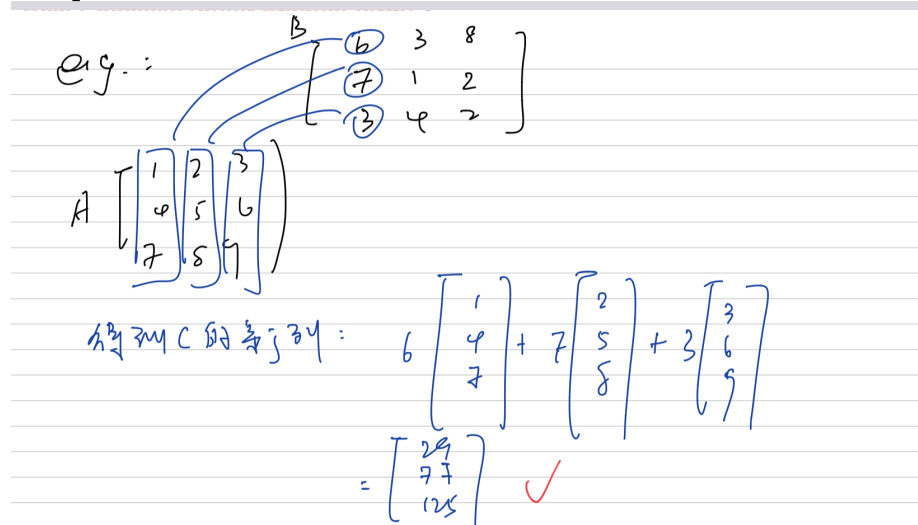 e.g.:
B
[ 6 3 8
7 1 2
3 4 2 ]
A [ 1 2 3
4 5 6
7 8 9 ]
得到C的第j列: 6 [ 1 4 7 ] + 7 [ 2 5 8 ] + 3 [ 3 6 9 ]
= [ 29
77
125 ] ✓